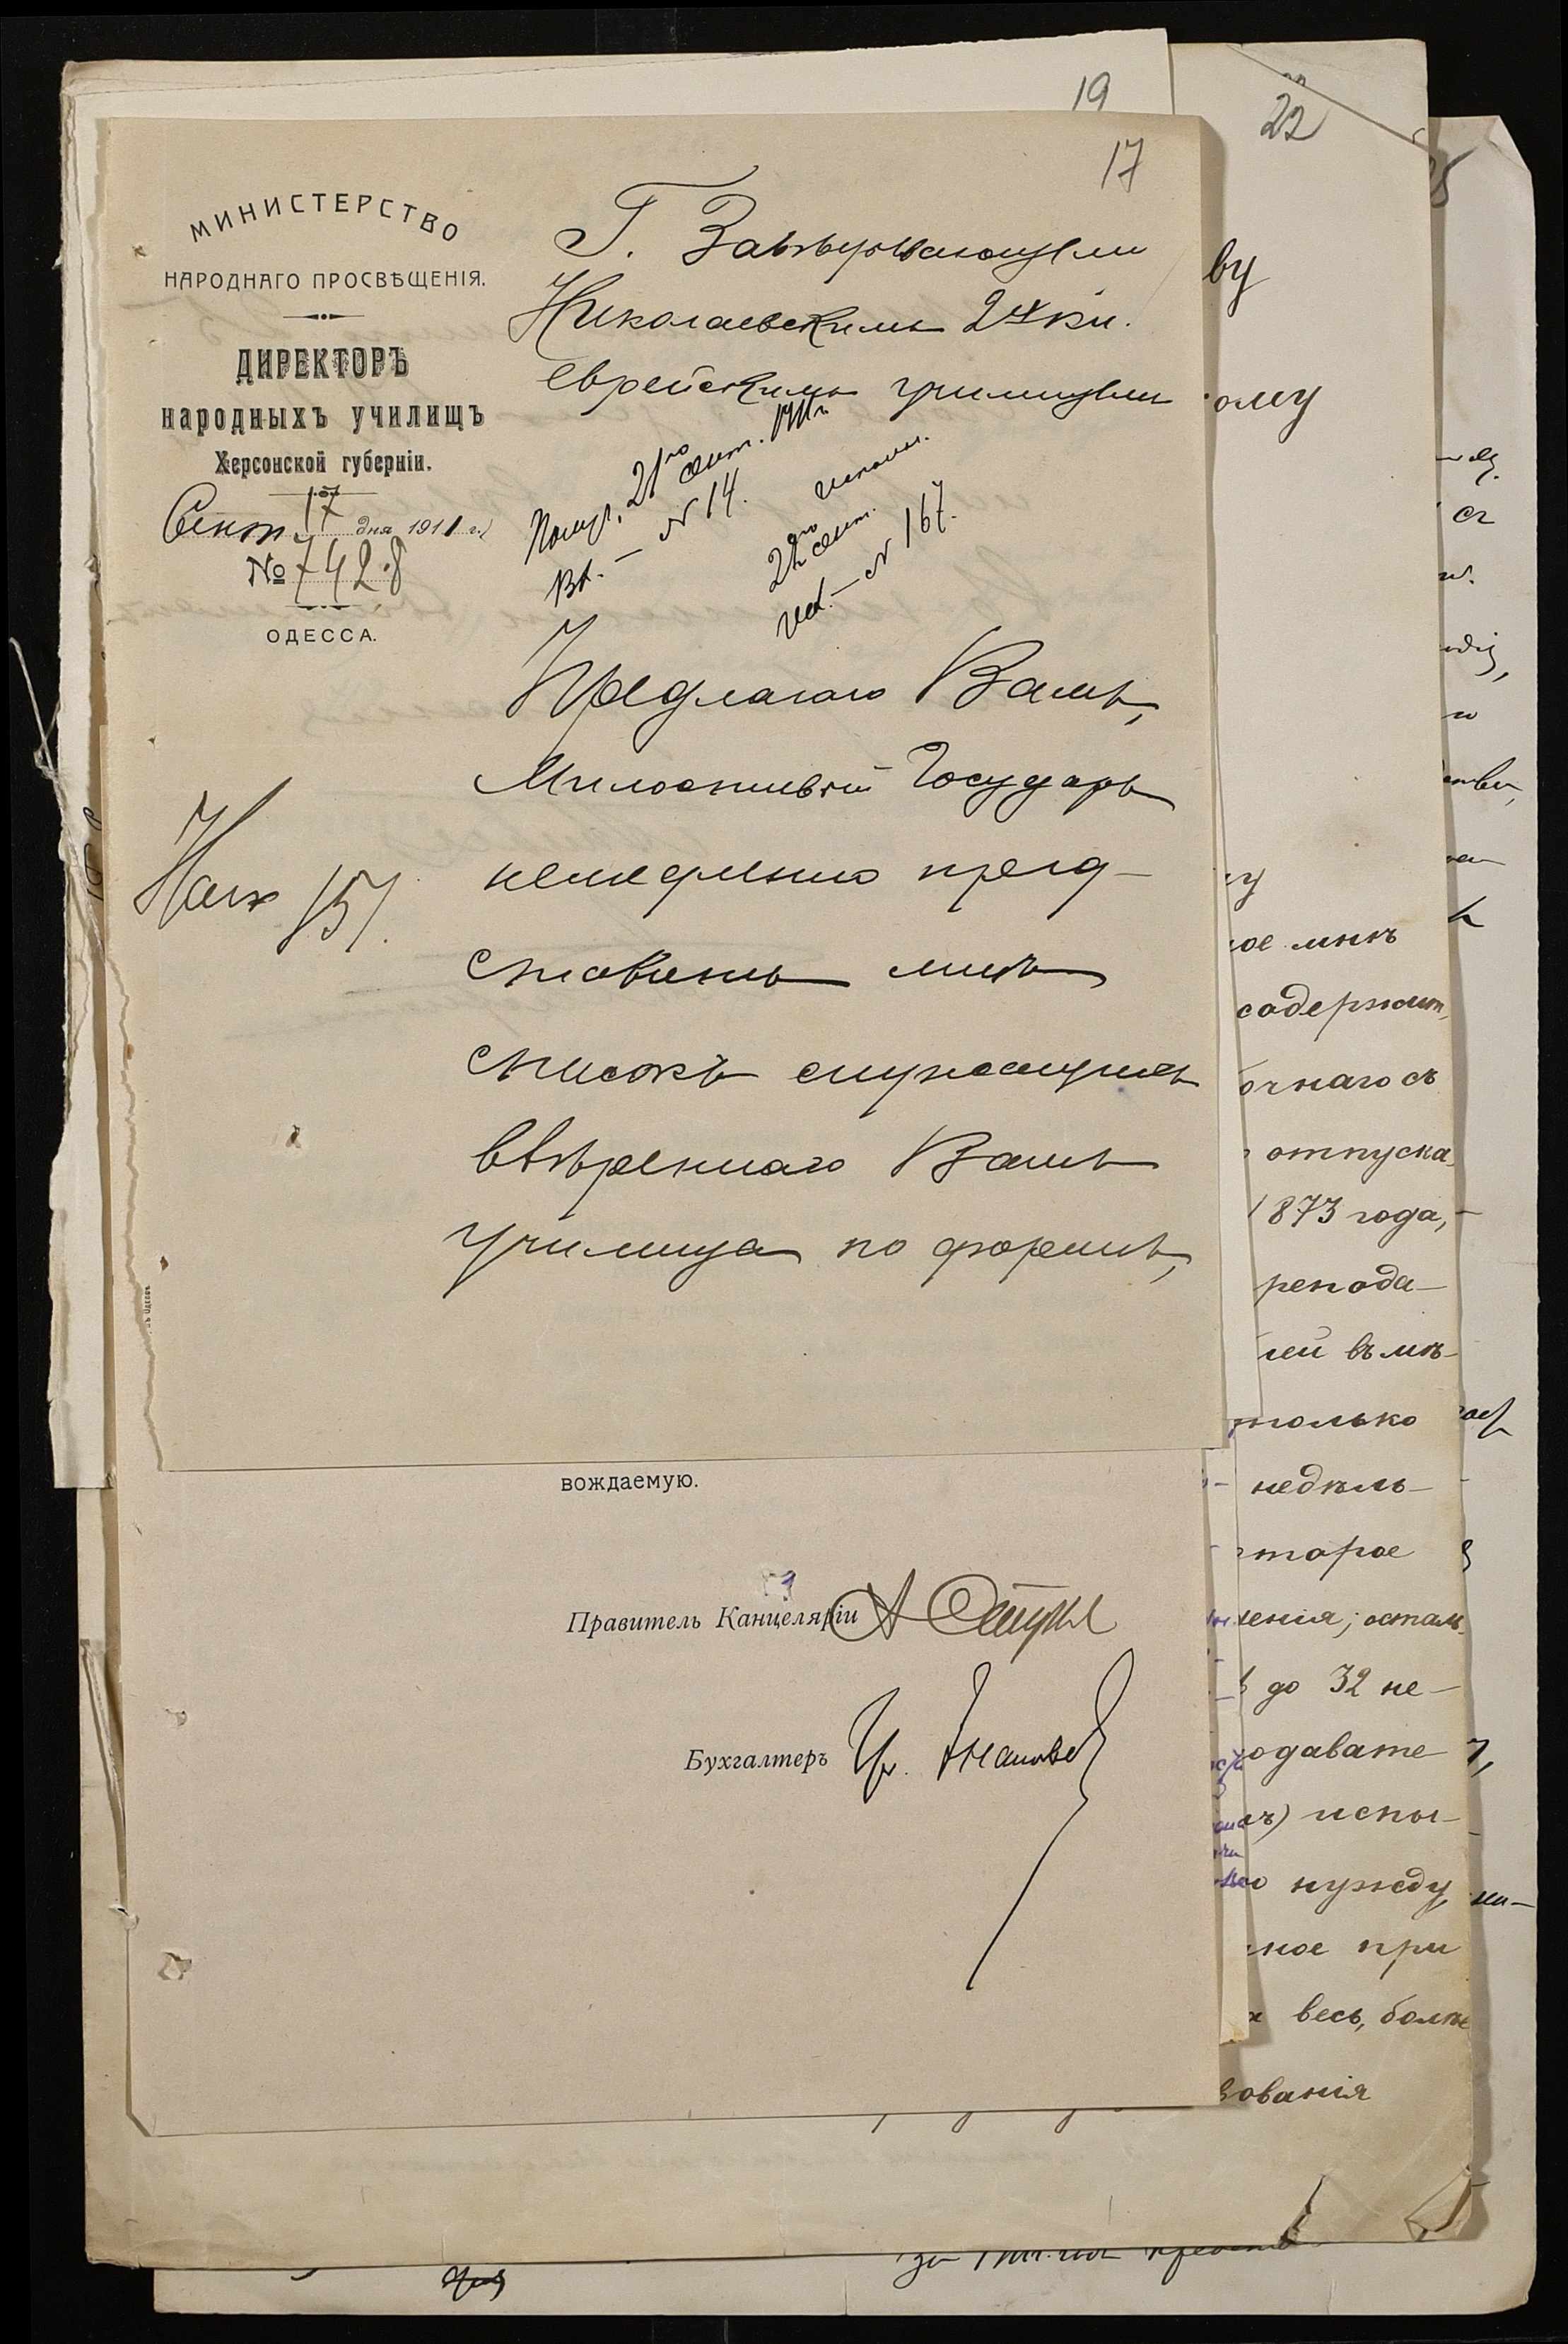 19
22
17
МИНИСТЕРСТВО
НАРОДНАГО ПРОСВѢЩЕНІЯ.
ДИРЕКТОРЪ
народныхъ училищъ
Херсонской губерніи.
Сент. 17 дня 1911 г.
№ 7428
ОДЕССА.
Г. Завѣдывающему
Николаевскимъ 2х кл.
еврейскимъ училищем
Получ. 21го сент. 1911 г.
Вх. — № 14.
исполн.
22го сент.
исх. — № 167.
Предлагаю Вамъ,
Милостивый Государь
немедленно пред-
ставить мнѣ
списокъ служащихъ
ввѣреннаго Вамъ
училища по формѣ,
Нах 151.
вождаемую.
Правитель Канцеляріи
Бухгалтеръ
ву
ому
ое мнѣ
содержит.
очнаго съ
отпуска
1873 года,
препода-
лей въ мѣ-
только
недѣль-
торое
ченія; осталь-
до 32 не-
одавате
испы-
нужду
ное при
весь, болѣе
зованія